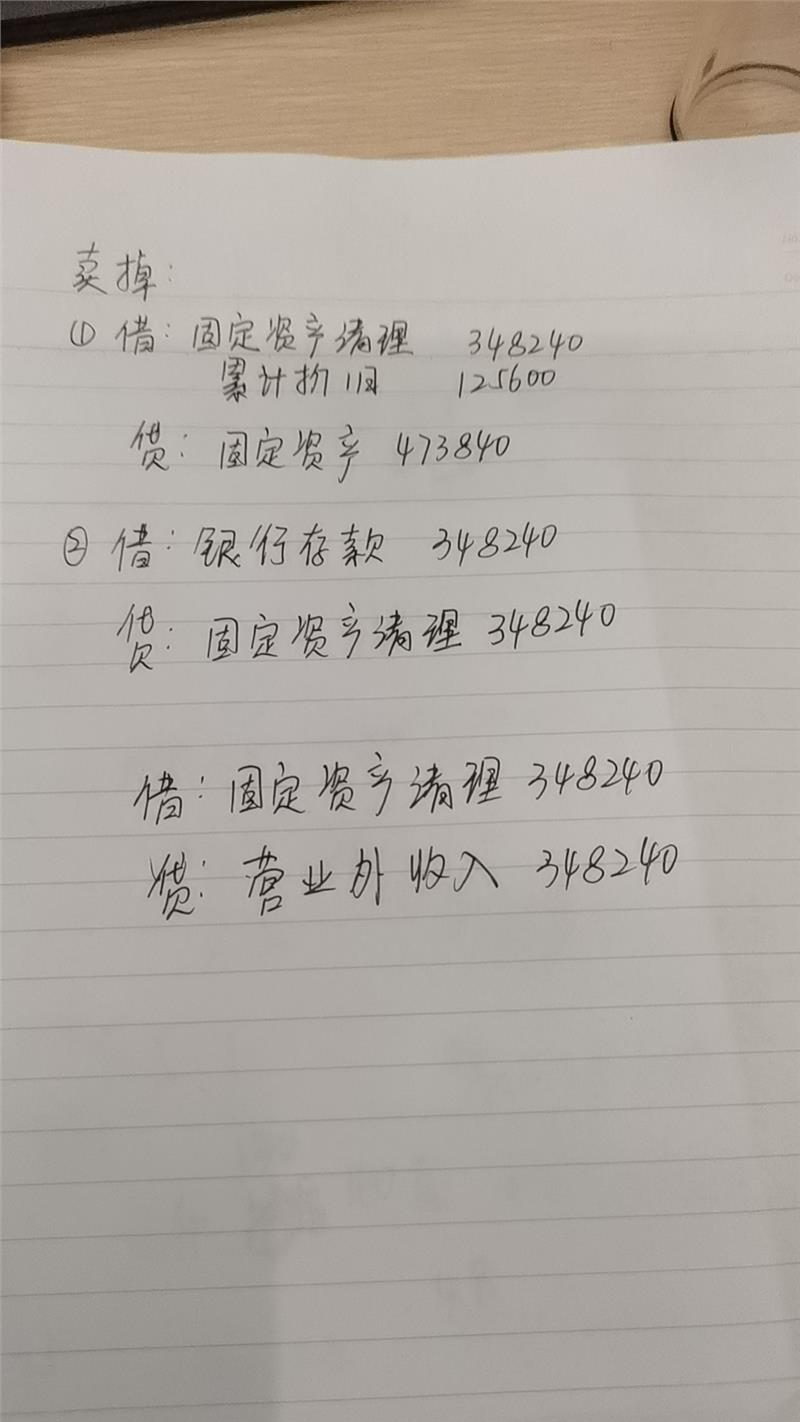 卖掉：
① 借：固定资产清理 348240
累计折旧 125600
贷：固定资产 473840
② 借：银行存款 348240
贷：固定资产清理 348240
借：固定资产清理 348240
贷：营业外收入 348240